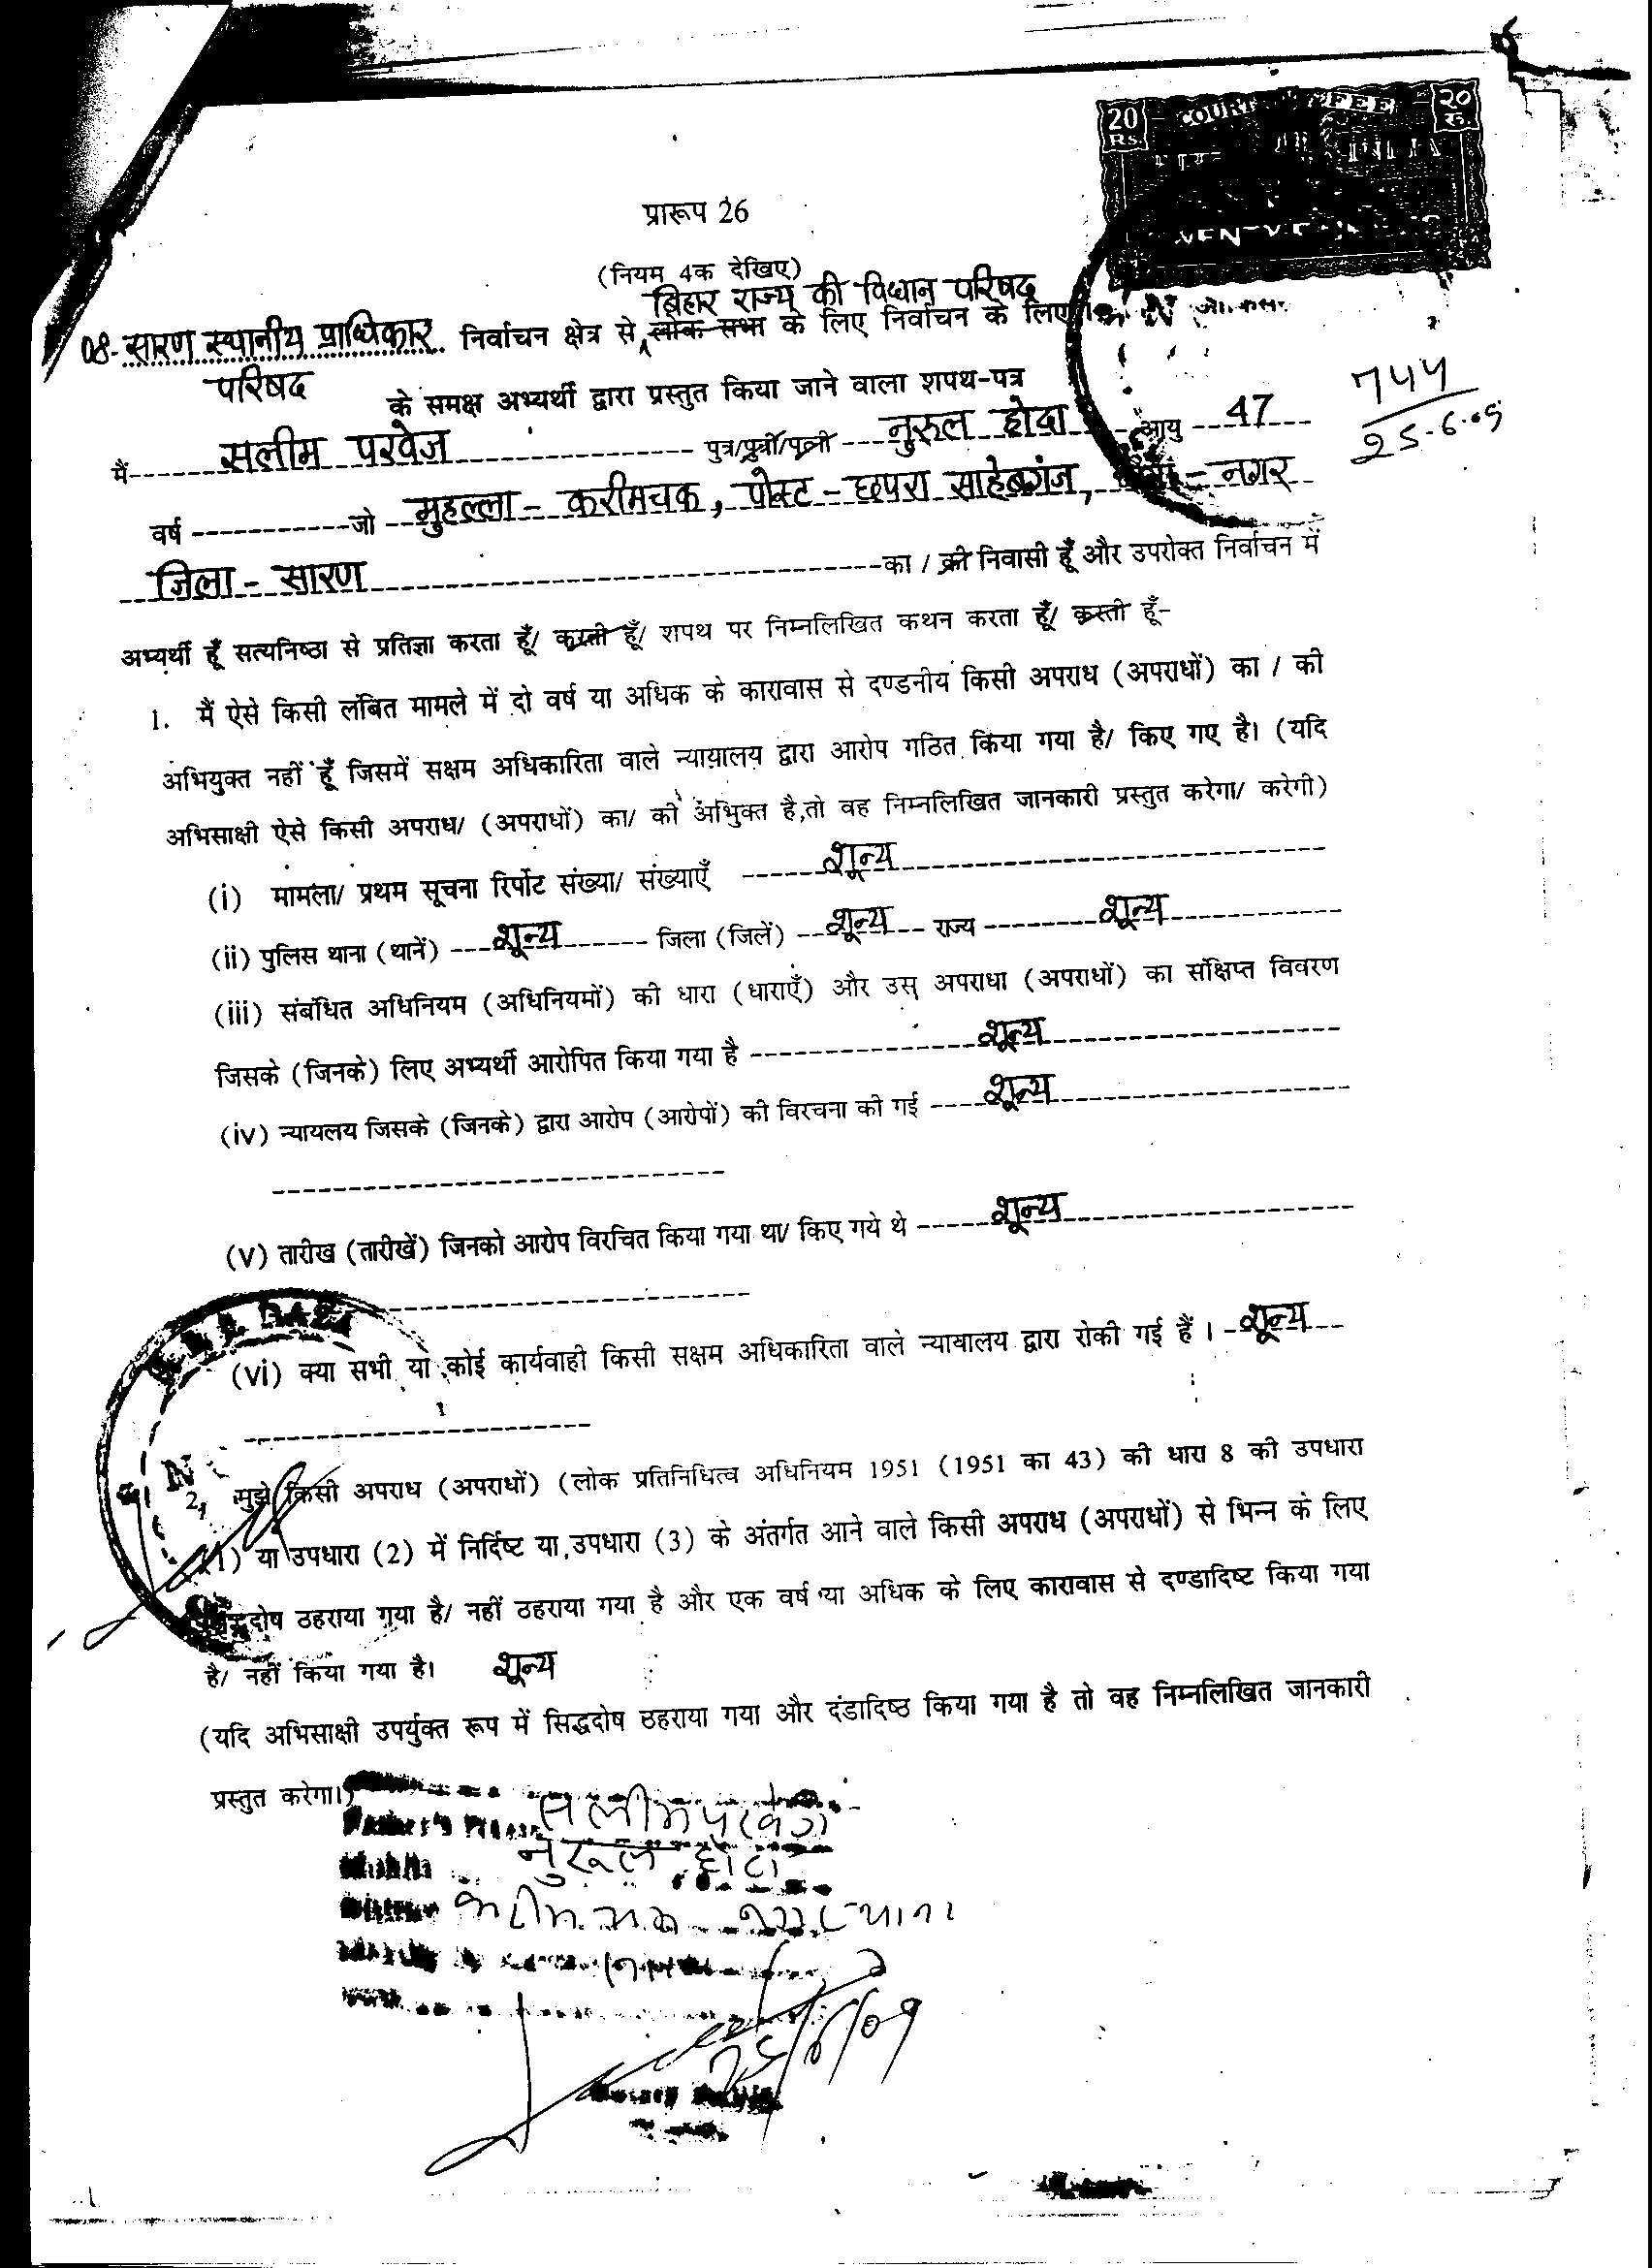 20 COURT FEE २०
Rs. रु.
INDIA
प्रारूप 26
(नियम 4क देखिए)
बिहार राज्य की विधान परिषद
08-सारण स्थानीय प्राधिकार निर्वाचन क्षेत्र से लोक सभा के लिए निर्वाचन के लिए
परिषद के समक्ष अभ्यर्थी द्वारा प्रस्तुत किया जाने वाला शपथ-पत्र
744
25-6-09
मैं सलीम परवेज पुत्र/पुत्री/पत्नी नुरुल होदा आयु 47
वर्ष जो मुहल्ला - करीमचक, पोस्ट - छपरा साहेबगंज, - नगर
जिला - सारण का / की निवासी हूँ और उपरोक्त निर्वाचन में
अभ्यर्थी हूँ सत्यनिष्ठा से प्रतिज्ञा करता हूँ/ करती हूँ/ शपथ पर निम्नलिखित कथन करता हूँ/ करती हूँ-
1. मैं ऐसे किसी लंबित मामले में दो वर्ष या अधिक के कारावास से दण्डनीय किसी अपराध (अपराधों) का / की
अभियुक्त नहीं हूँ जिसमें सक्षम अधिकारिता वाले न्यायालय द्वारा आरोप गठित किया गया है/ किए गए है। (यदि
अभिसाक्षी ऐसे किसी अपराध/ (अपराधों) का/ की अभिुक्त है,तो वह निम्नलिखित जानकारी प्रस्तुत करेगा/ करेगी)
(i) मामला/ प्रथम सूचना रिर्पोट संख्या/ संख्याएँ शून्य
(ii) पुलिस थाना (थानें) शून्य जिला (जिलें) शून्य राज्य शून्य
(iii) संबंधित अधिनियम (अधिनियमों) की धारा (धाराएँ) और उस् अपराधा (अपराधों) का संक्षिप्त विवरण
जिसके (जिनके) लिए अभ्यर्थी आरोपित किया गया है शून्य
(iv) न्यायलय जिसके (जिनके) द्वारा आरोप (आरोपों) की विरचना की गई शून्य
(v) तारीख (तारीखें) जिनको आरोप विरचित किया गया था/ किए गये थे शून्य
(vi) क्या सभी या कोई कार्यवाही किसी सक्षम अधिकारिता वाले न्यायालय द्वारा रोकी गई हैं । शून्य
2, मुझे किसी अपराध (अपराधों) (लोक प्रतिनिधित्व अधिनियम 1951 (1951 का 43) की धारा 8 की उपधारा
(1) या उपधारा (2) में निर्दिष्ट या उपधारा (3) के अंतर्गत आने वाले किसी अपराध (अपराधों) से भिन्न के लिए
सिद्धदोष ठहराया गया है/ नहीं ठहराया गया है और एक वर्ष या अधिक के लिए कारावास से दण्डादिष्ट किया गया
है/ नहीं किया गया है। शून्य
(यदि अभिसाक्षी उपर्युक्त रूप में सिद्धदोष ठहराया गया और दंडादिष्ठ किया गया है तो वह निम्नलिखित जानकारी
प्रस्तुत करेगा।)
सलीम परवेज
नुरूल होदा